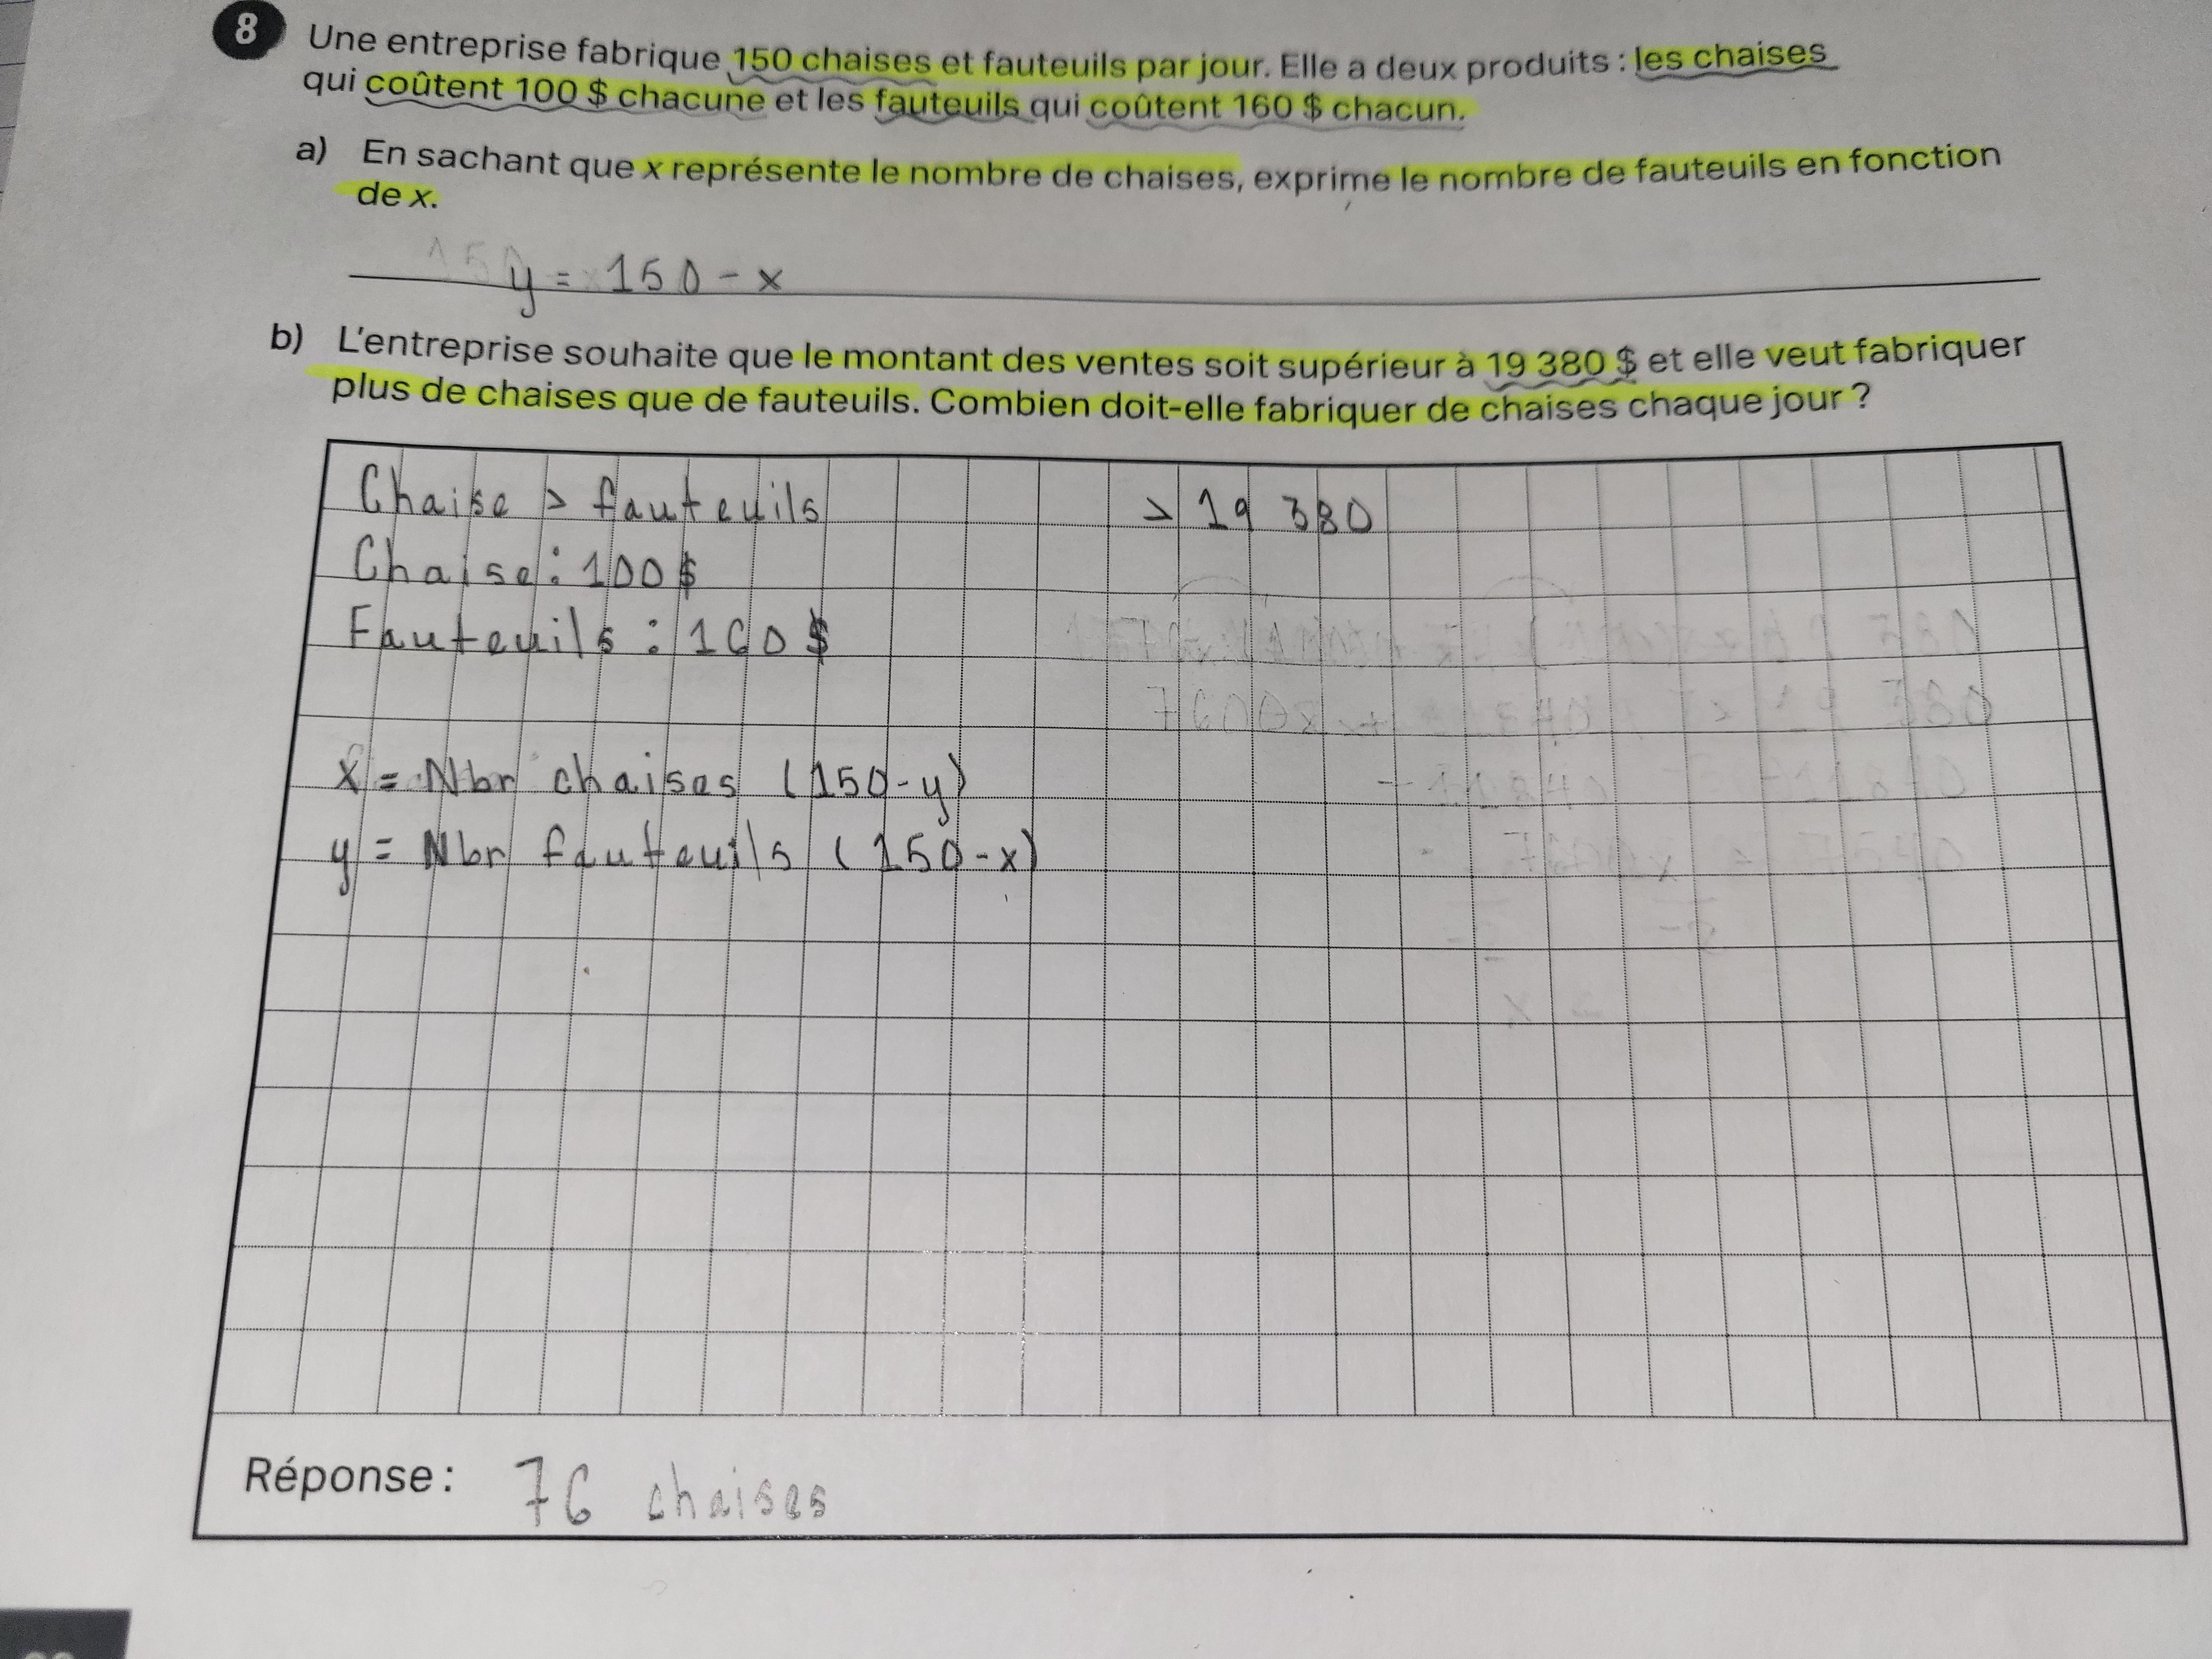 8 Une entreprise fabrique 150 chaises et fauteuils par jour. Elle a deux produits : les chaises
qui coûtent 100 $ chacune et les fauteuils qui coûtent 160 $ chacun.
a) En sachant que x représente le nombre de chaises, exprime le nombre de fauteuils en fonction
de x.
y = 150 - x
b) L'entreprise souhaite que le montant des ventes soit supérieur à 19 380 $ et elle veut fabriquer
plus de chaises que de fauteuils. Combien doit-elle fabriquer de chaises chaque jour ?
Chaise > fauteuils > 19 380
Chaise : 100 $
Fauteuils : 160 $
x = Nbr chaises (150-y)
y = Nbr fauteuils (150-x)
Réponse : 76 chaises